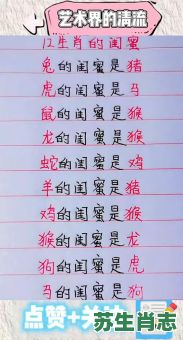 艺术界的清流
12生肖的闺蜜
兔的闺蜜是猪
虎的闺蜜是马
鼠的闺蜜是猴
龙的闺蜜是猴
蛇的闺蜜是鸡
羊的闺蜜是猪
鸡的闺蜜是猴
猴的闺蜜是龙
狗的闺蜜是虎
马的闺蜜是狗
点赞+关
苏生肖志